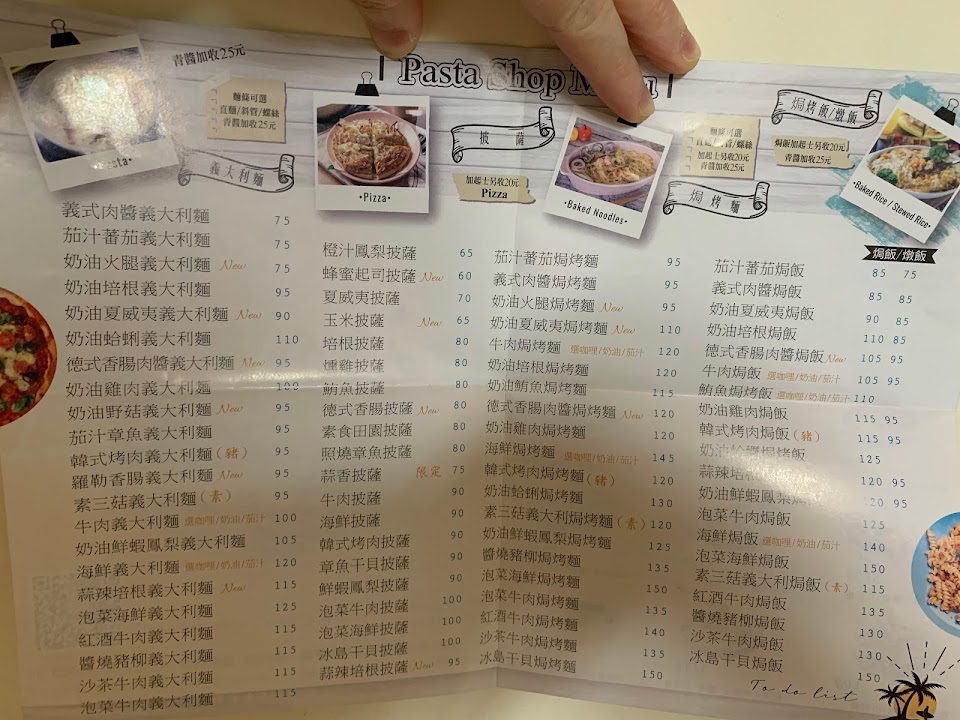 青醬加收25元
Pasta Shop Menu
麵條可選
直麵/斜管/螺絲
青醬加收25元
義大利麵
義式肉醬義大利麵 75
茄汁蕃茄義大利麵 75
奶油火腿義大利麵 New 75
奶油培根義大利麵 95
奶油夏威夷義大利麵 New 90
奶油蛤蜊義大利麵 110
德式香腸肉醬義大利麵 New 95
奶油雞肉義大利麵 100
奶油野菇義大利麵 New 95
茄汁章魚義大利麵 95
韓式烤肉義大利麵(豬) 95
羅勒香腸義大利麵 New 95
素三菇義大利麵(素) 95
牛肉義大利麵 選咖哩/奶油/茄汁 100
奶油鮮蝦鳳梨義大利麵 105
海鮮義大利麵 選咖哩/奶油/茄汁 120
蒜辣培根義大利麵 New 115
泡菜海鮮義大利麵 125
紅酒牛肉義大利麵 115
醬燒豬柳義大利麵 115
沙茶牛肉義大利麵 115
泡菜牛肉義大利麵 115
•Pizza•
披薩
加起士另收20元
Pizza
橙汁鳳梨披薩 65
蜂蜜起司披薩 New 60
夏威夷披薩 70
玉米披薩 New 65
培根披薩 80
燻雞披薩 80
鮪魚披薩 80
德式香腸披薩 New 80
素食田園披薩 80
照燒章魚披薩 80
蒜香披薩 限定 75
牛肉披薩 90
海鮮披薩 90
韓式烤肉披薩 90
章魚干貝披薩 90
鮮蝦鳳梨披薩 90
泡菜牛肉披薩 100
泡菜海鮮披薩 100
冰島干貝披薩 100
蒜辣培根披薩 New 95
•Baked Noodles•
麵條可選
直麵/斜管/螺絲
加起士另收20元
青醬加收25元
焗烤麵
茄汁蕃茄焗烤麵 95
義式肉醬焗烤麵 95
奶油火腿焗烤麵 New 95
奶油夏威夷焗烤麵 New 110
牛肉焗烤麵 選咖哩/奶油/茄汁 120
奶油培根焗烤麵 120
奶油鮪魚焗烤麵 115
德式香腸肉醬焗烤麵 New 120
奶油雞肉焗烤麵 120
海鮮焗烤麵 選咖哩/奶油/茄汁 145
韓式烤肉焗烤麵(豬) 120
奶油蛤蜊焗烤麵 130
素三菇義大利焗烤麵(素) 120
奶油鮮蝦鳳梨焗烤麵 125
醬燒豬柳焗烤麵 135
泡菜海鮮焗烤麵 150
泡菜牛肉焗烤麵 135
紅酒牛肉焗烤麵 140
沙茶牛肉焗烤麵 135
冰島干貝焗烤麵 150
焗烤飯/燉飯
焗飯加起士另收20元
青醬加收25元
•Baked Rice / Stewed Rice•
焗飯/燉飯
茄汁蕃茄焗飯 85 75
義式肉醬焗飯 85 85
奶油夏威夷焗飯 90 85
奶油培根焗飯 110 85
德式香腸肉醬焗飯 New 105 95
牛肉焗飯 選咖哩/奶油/茄汁 105 95
鮪魚焗烤飯 選咖哩/奶油/茄汁 110
奶油雞肉焗飯 115 95
韓式烤肉焗飯(豬) 115 95
奶油蛤蜊焗飯 125
蒜辣培根 120 95
奶油鮮蝦鳳梨 120 95
泡菜牛肉焗飯 125
海鮮焗飯 選咖哩/奶油/茄汁 140
泡菜海鮮焗飯 150
素三菇義大利焗飯(素) 115
紅酒牛肉焗飯
醬燒豬柳焗飯 130
沙茶牛肉焗飯 130
冰島干貝焗飯 150
To do list